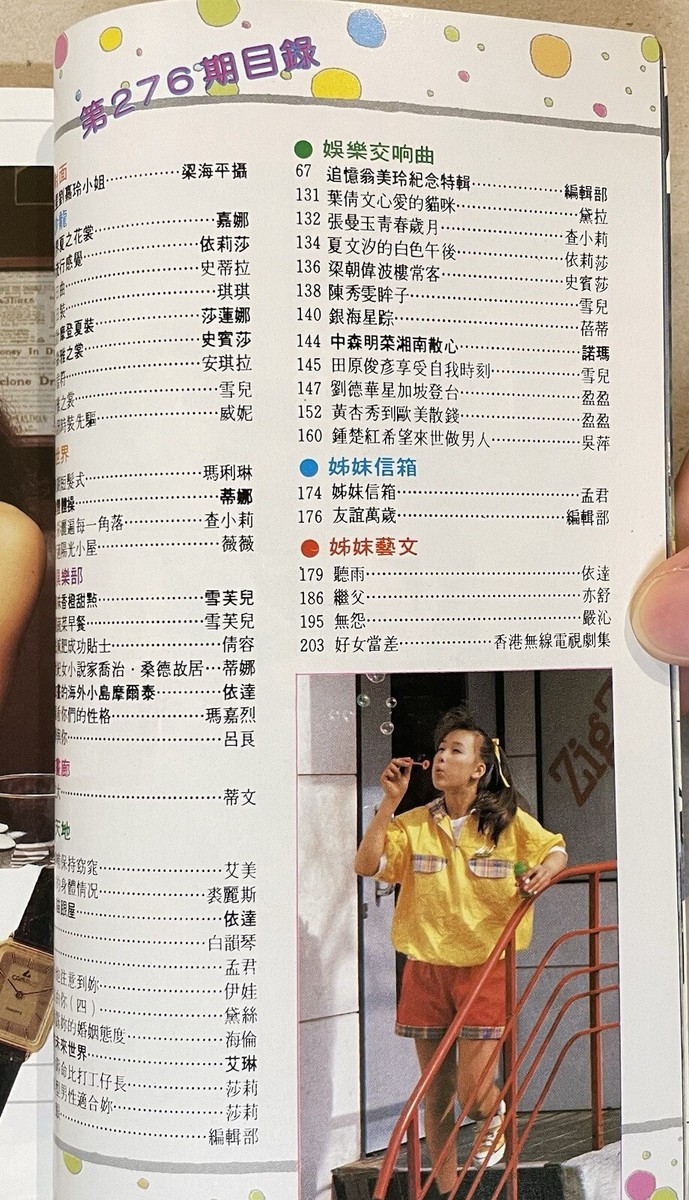 第276期目錄
劉嘉玲小姐…………梁海平攝
夏之花裳…………嘉娜
行感覺…………依莉莎
曲…………史蒂拉
裝…………琪琪
登夏裝…………莎蓮娜
雅之裳…………史賓莎
符…………安琪拉
之裳…………雪兒
時裝先驅…………威妮
世界
短髮式…………瑪利琳
體操…………蒂娜
遍每一角落…………查小莉
陽光小屋…………薇薇
樂部
香橙甜點…………雪芙兒
菜早餐…………雪芙兒
減肥成功貼士…………倩容
女小說家喬治·桑德故居…蒂娜
的海外小島摩爾泰…………依達
看你們的性格…………瑪嘉烈
你…………呂良
畫廊
…………蒂文
天地
保持窈窕…………艾美
身體情況…………裘麗斯
跟屋…………依達
…………白韻琴
…………孟君
注意到妳…………伊娃
你(四)…………黛絲
妳的婚姻態度…………海倫
未來世界…………艾琳
命比打工仔長…………莎莉
型男性適合妳…………莎莉
…………編輯部
● 娛樂交响曲
67 追憶翁美玲紀念特輯…………編輯部
131 葉倩文心愛的貓咪…………黛拉
132 張曼玉青春歲月…………查小莉
134 夏文汐的白色午後…………依莉莎
136 梁朝偉波樓常客…………史賓莎
138 陳秀雯眸子…………雪兒
140 銀海星踪…………蓓蒂
144 中森明菜湘南散心…………諾瑪
145 田原俊彥享受自我時刻…………雪兒
147 劉德華星加坡登台…………盈盈
152 黃杏秀到歐美散錢…………盈盈
160 鍾楚紅希望來世做男人…………吳萍
● 姊妹信箱
174 姊妹信箱…………孟君
176 友誼萬歲…………編輯部
● 姊妹藝文
179 聽雨…………依達
186 繼父…………亦舒
195 無怨…………嚴沁
203 好女當差…………香港無線電視劇集